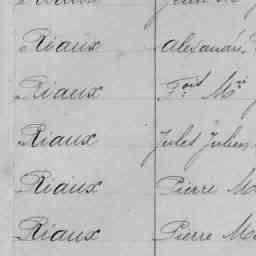 Riaux Alexand
Riaux F.ois M
Riaux Jules Julien
Riaux Pierre M
Riaux Pierre M